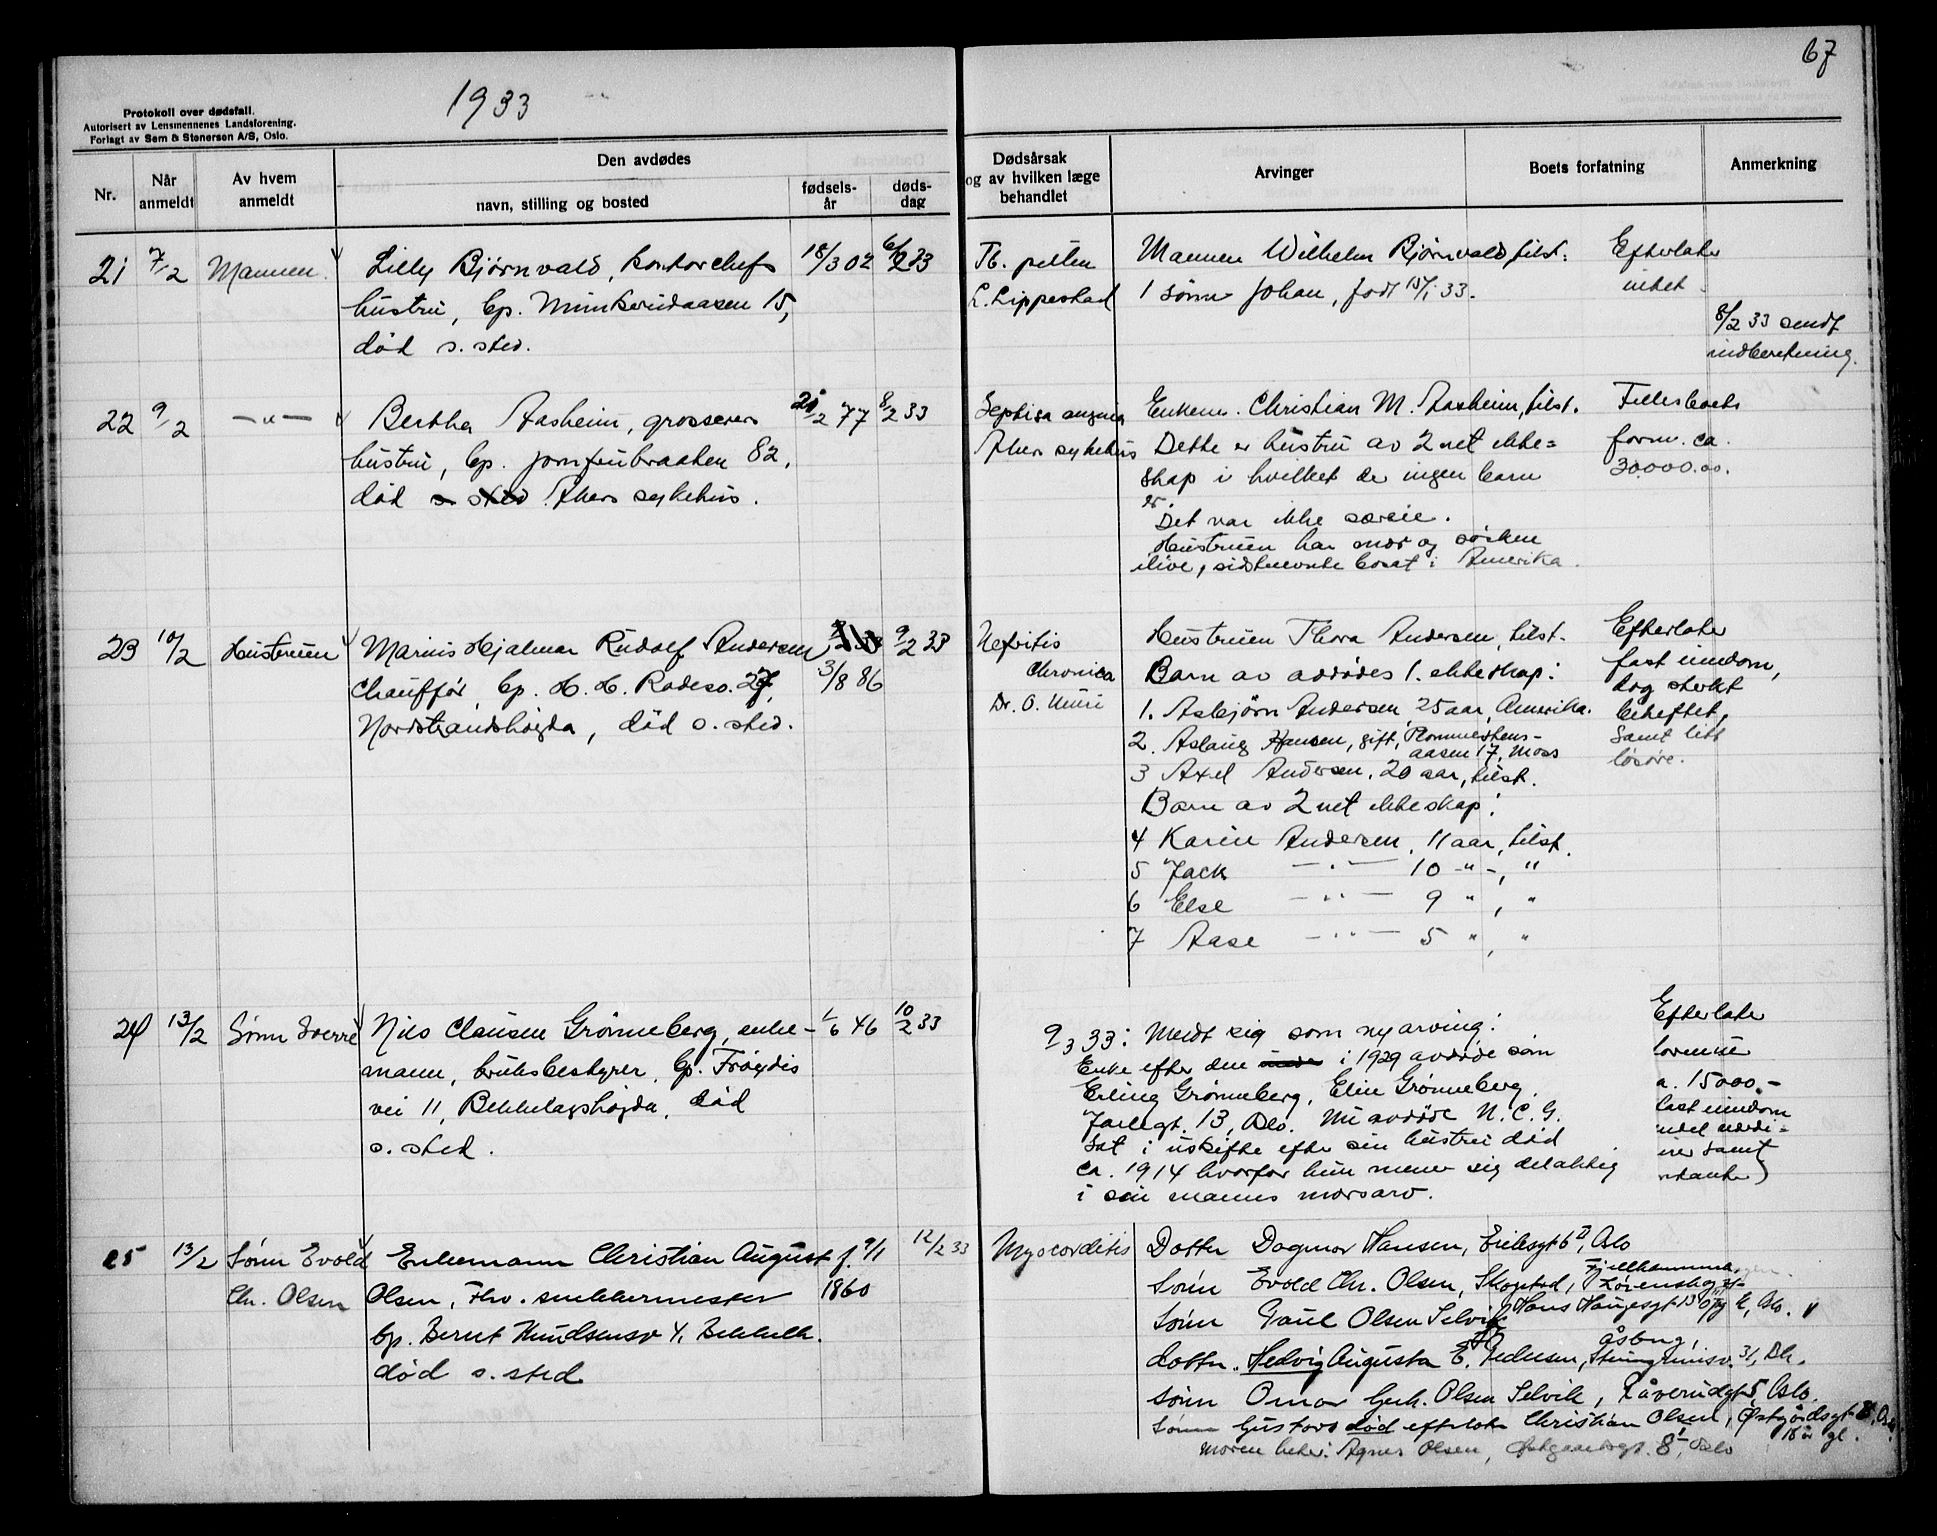 67
1933
Protokoll over dødsfall.
Autorisert av Lensmennenes Landsforening.
Forlagt av Sem & Stenersen A/S, Oslo.
Nr.
Når anmeldt
Av hvem anmeldt
Den avdødes
navn, stilling og bosted
fødsels-år
døds-dag
Dødsårsak og av hvilken læge behandlet
Arvinger
Boets forfatning
Anmerkning
21 7/2 Mannen
Lilly Bjørnvald, kontorchefs 18/3 02 6/2 33
hustru, bp. Munkerudaasen 15,
død s. sted.
L. Lippestad
Mannen Wilhelm Bjørnvald, tilst.
1 sønn Johan, født 15/1 33.
Efterlater
intet.
8/2 33 sendt
indberetning.
22 9/2 — " —
Bertha Aasheim, grosserers 21/2 77 8/2 33
hustru, bp. Jomfrubraaten 82,
død s sted Akers sykehus.
Septisa angina
Akers sykehus
Enkem. Christian M. Aasheim, tilst.
Dette er hustru av 2net ekte=
skap i hvilket der ingen barn
er.
Det var ikke særeie.
Hustruen har mor og søsken
ilive, sidstnevnte bosat i Amerika.
Fellesboets
form. ca.
30.000.00.
23 10/2 Hustruen
Marius Hjalmar Rudolf Andersen 9/2 33
Chauffør, bp. H. H. Rades v. 27, 3/8 86
Nordstrandshøgda, død s. sted.
Nefritis
Chronica
Dr. O.
Hustruen Thora Andersen, tilst.
Barn av avdødes 1. ekteskap:
1. Asbjørn Andersen, 25 aar, Amerika.
2. Aslaug Hansen, gift,
aasen 17, Moss
3 Axel Andersen, 20 aar, tilst.
Barn av 2net ekteskap:
4 Karin Andersen, 11 aar, tilst.
5 Jack — " — 10 - " -, "
6 Else — " — 9 ", "
7 Aase — " — 5 ", "
Efterlater
fast eiendom,
dog sterkt
beheftet,
samt litt
løsøre.
24 13/2 Sønn Sverre
Nils Clausen Grønneberg, enke- 1/6 46 10/2 33
mann, bruksbestyrer, bp. Frøydis
vei 11, Bekkelagshøgda, død
s. sted.
9/3 33: Meldt sig som ny arving:
Enke efter den i 1929 avdøde søn
Erling Grønneberg, Elin Grønneberg,
Jarlegt. 13, Oslo. Nu avdøde N. C. G.
sat i uskifte efter sin hustru død
ca. 1914 hvorfor hun mener sig delaktig
i sin manns morsarv.
Efterlater
a. 15000.-
fast eiendom
samt
25 13/2 Sønn Evold
Chr. Olsen
Enkemann Christian August f. 9/1 12/2 33
Olsen, fhv. snekkermester 1860
bp. Bernt Knudsensv 4, Bekkelh.
død s. sted
Myocorditis
Datter Dagmar Hansen, Eriksgt 6 II, Oslo
Sønn Evold Chr. Olsen, Skogstad, Fjellhamma
Sønn Paul Olsen Selvik Hans Haugesgt 13 Oslo.
datter. Hedvig Augusta E. Pedersen, 31,
sønn Omar Gerh. Olsen Selvik, Oslo.
Sønn Gustavs død efterlate Christian Olsen, Østgårdsgt 8,
18 år gl.
Moren heter: Agnes Olsen, Østgaardsgt. 8 I, Oslo